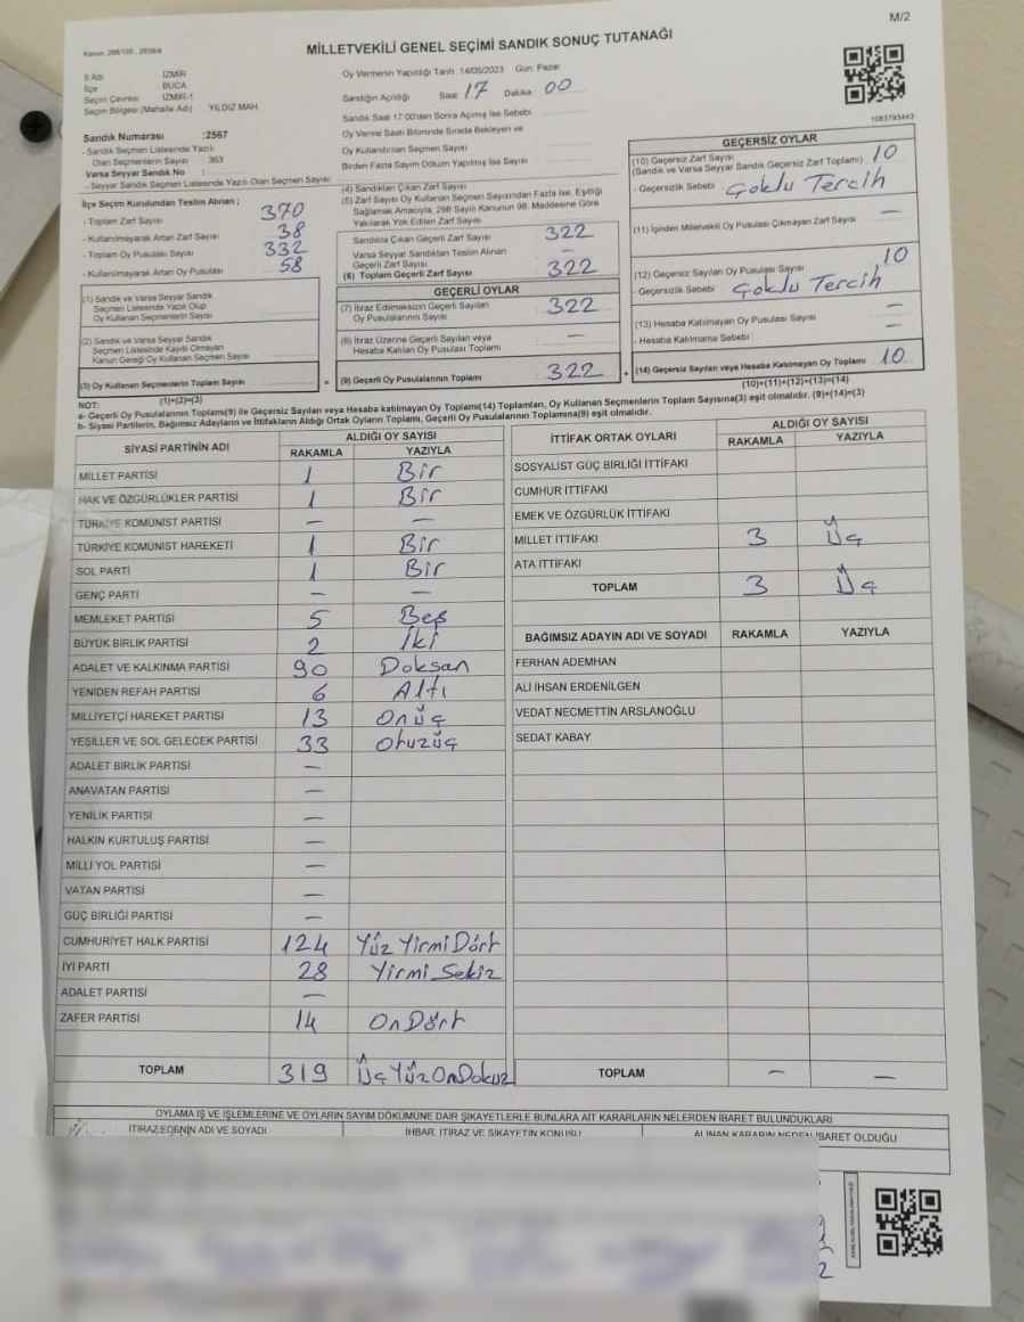 M/2
MİLLETVEKİLİ GENEL SEÇİMİ SANDIK SONUÇ TUTANAĞI
İl Adı : İZMİR
İlçe : BUCA
Seçim Çevresi : İZMİR-1
Seçim Bölgesi (Mahalle Adı) : YILDIZ MAH.
Sandık Numarası : 2567
- Sandık Seçmen Listesinde Yazılı
Olan Seçmenlerin Sayısı : 363
Varsa Seyyar Sandık No :
- Seyyar Sandık Seçmen Listesinde Yazılı Olan Seçmen Sayısı:
İlçe Seçim Kurulundan Teslim Alınan ;
- Toplam Zarf Sayısı 370
- Kullanılmayarak Artan Zarf Sayısı 38
- Toplam Oy Pusulası Sayısı 332
- Kullanılmayarak Artan Oy Pusulası 58
(1) Sandık ve Varsa Seyyar Sandık
Seçmen Listesinde Yazılı Olup
Oy Kullanan Seçmenlerin Sayısı
(2) Sandık ve Varsa Seyyar Sandık
Seçmen Listesinde Kayıtlı Olmayan
Kanun Gereği Oy Kullanan Seçmen Sayısı
(3) Oy Kullanan Seçmenlerin Toplam Sayısı
(1)+(2)=(3)
Oy Vermenin Yapıldığı Tarih: 14/05/2023 Gün: Pazar
Sandığın Açıldığı Saat 17 Dakika 00
Sandık Saat 17:00'den Sonra Açılmış İse Sebebi
Oy Verme Saati Bitiminde Sırada Bekleyen ve
Oy Kullandırılan Seçmen Sayısı
Birden Fazla Sayım Döküm Yapılmış İse Sayısı
(4) Sandıktan Çıkan Zarf Sayısı
(5) Zarf Sayısı Oy Kullanan Seçmen Sayısından Fazla İse, Eşitliği
Sağlamak Amacıyla, 298 Sayılı Kanunun 98. Maddesine Göre
Yakılarak Yok Edilen Zarf Sayısı
Sandıkta Çıkan Geçerli Zarf Sayısı 322
Varsa Seyyar Sandıktan Teslim Alınan
Geçerli Zarf Sayısı —
(6) Toplam Geçerli Zarf Sayısı 322
GEÇERLİ OYLAR
(7) İtiraz Edilmeksizin Geçerli Sayılan
Oy Pusulalarının Sayısı 322
(8) İtiraz Üzerine Geçerli Sayılan veya
Hesaba Katılan Oy Pusulası Toplamı —
(9) Geçerli Oy Pusulalarının Toplamı 322
1083793443
GEÇERSİZ OYLAR
(10) Geçersiz Zarf Sayısı
(Sandık ve Varsa Seyyar Sandık Geçersiz Zarf Toplamı) 10
- Geçersizlik Sebebi Çoklu Tercih
(11) İçinden Milletvekili Oy Pusulası Çıkmayan Zarf Sayısı —
(12) Geçersiz Sayılan Oy Pusulası Sayısı 10
- Geçersizlik Sebebi Çoklu Tercih
(13) Hesaba Katılmayan Oy Pusulası Sayısı —
- Hesaba Katılmama Sebebi —
(14) Geçersiz Sayılan veya Hesaba Katılmayan Oy Toplamı 10
(10)+(11)+(12)+(13)=(14)
NOT:
a- Geçerli Oy Pusulalarının Toplamı(9) ile Geçersiz Sayılan veya Hesaba katılmayan Oy Toplamı(14) Toplamları, Oy Kullanan Seçmenlerin Toplam Sayısına(3) eşit olmalıdır. (9)+(14)=(3)
b- Siyasi Partilerin, Bağımsız Adayların ve İttifakların Aldığı Ortak Oyların Toplamı, Geçerli Oy Pusulalarının Toplamına(9) eşit olmalıdır.
SİYASİ PARTİNİN ADI ALDIĞI OY SAYISI
RAKAMLA YAZIYLA
MİLLET PARTİSİ 1 Bir
HAK VE ÖZGÜRLÜKLER PARTİSİ 1 Bir
TÜRKİYE KOMÜNİST PARTİSİ — —
TÜRKİYE KOMÜNİST HAREKETİ 1 Bir
SOL PARTİ 1 Bir
GENÇ PARTİ — —
MEMLEKET PARTİSİ 5 Beş
BÜYÜK BİRLİK PARTİSİ 2 İki
ADALET VE KALKINMA PARTİSİ 90 Doksan
YENİDEN REFAH PARTİSİ 6 Altı
MİLLİYETÇİ HAREKET PARTİSİ 13 Onüç
YEŞİLLER VE SOL GELECEK PARTİSİ 33 Otuzüç
ADALET BİRLİK PARTİSİ —
ANAVATAN PARTİSİ —
YENİLİK PARTİSİ —
HALKIN KURTULUŞ PARTİSİ —
MİLLİ YOL PARTİSİ —
VATAN PARTİSİ —
GÜÇ BİRLİĞİ PARTİSİ —
CUMHURİYET HALK PARTİSİ 124 Yüz Yirmi Dört
İYİ PARTİ 28 Yirmi Sekiz
ADALET PARTİSİ —
ZAFER PARTİSİ 14 On Dört
TOPLAM 319 Üç Yüz On Dokuz
İTTİFAK ORTAK OYLARI ALDIĞI OY SAYISI
RAKAMLA YAZIYLA
SOSYALİST GÜÇ BİRLİĞİ İTTİFAKI
CUMHUR İTTİFAKI
EMEK VE ÖZGÜRLÜK İTTİFAKI
MİLLET İTTİFAKI 3 Üç
ATA İTTİFAKI
TOPLAM 3 Üç
BAĞIMSIZ ADAYIN ADI VE SOYADI RAKAMLA YAZIYLA
FERHAN ADEMHAN
ALİ İHSAN ERDENİLGEN
VEDAT NECMETTİN ARSLANOĞLU
SEDAT KABAY
TOPLAM — —
OYLAMA İŞ VE İŞLEMLERİNE VE OYLARIN SAYIM DÖKÜMÜNE DAİR ŞİKAYETLERLE BUNLARA AİT KARARLARIN NELERDEN İBARET BULUNDUKLARI
İTİRAZ EDENİN ADI VE SOYADI İHBAR, İTİRAZ VE ŞİKAYETİN KONUSU ALINAN KARARIN NEDEN İBARET OLDUĞU